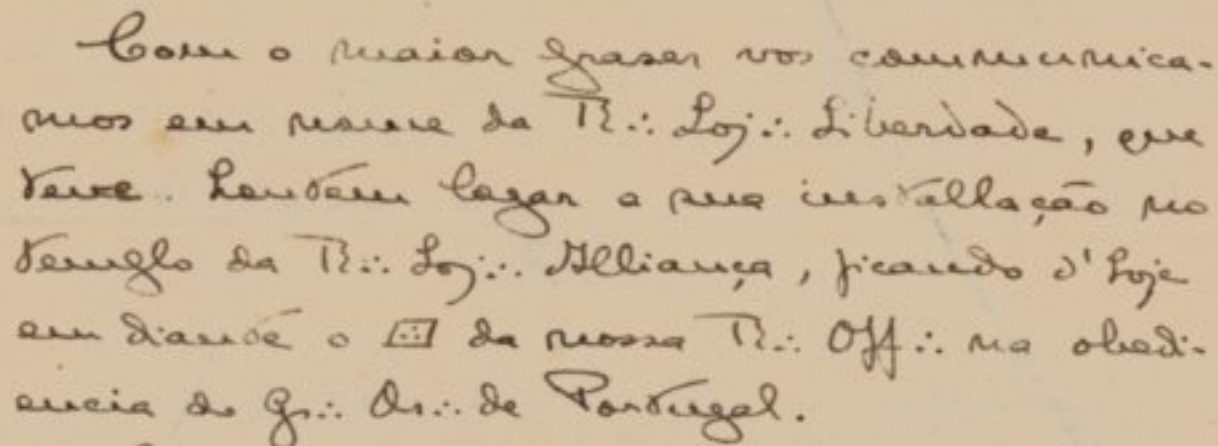 Com o maior praser vos communica-
mos em nome da R∴ Loj∴ Liberdade, que
teve hontem logar a sua installação no
templo da R∴ Loj∴ Alliança, ficando d'hoje
em diante o da nossa R∴ Off∴ na obedi-
encia do Gr∴ Or∴ de Portugal.